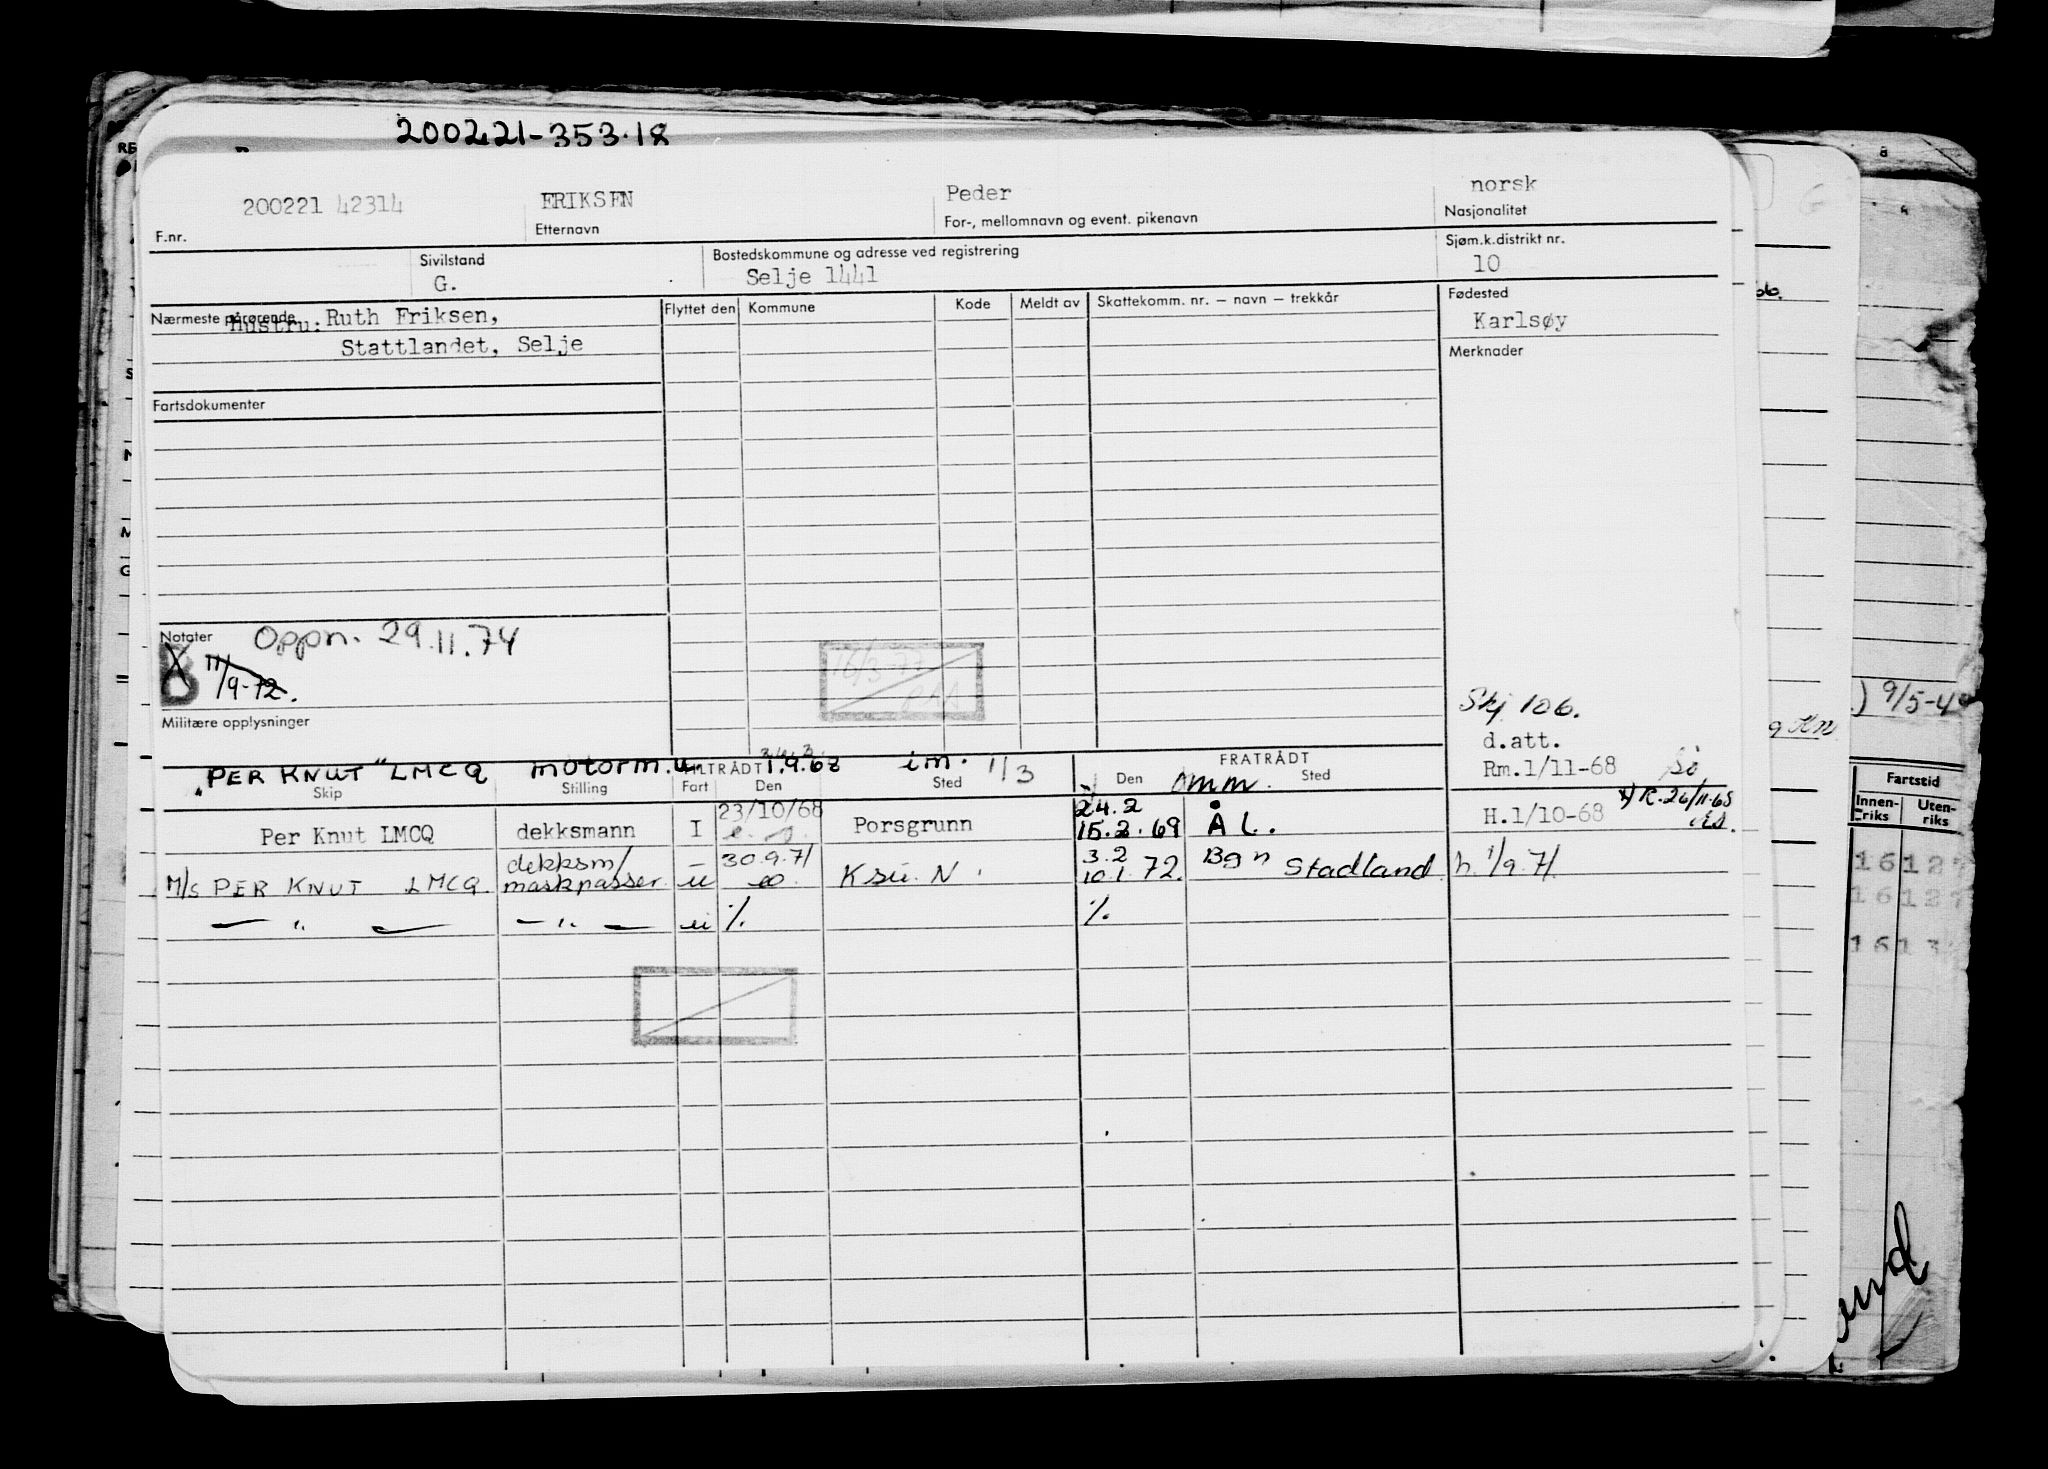 200221-353.18
200221 42314 ERIKSEN Peder norsk
F.nr. Etternavn For-, mellomnavn og event. pikenavn Nasjonalitet
Sivilstand Bostedskommune og adresse ved registrering Sjøm.k.distrikt nr.
G. Selje 1441 10
Nærmeste pårørende Flyttet den Kommune Kode Meldt av Skattekomm. nr. – navn – trekkår Fødested
Hustru: Ruth Eriksen, Karlsøy
Stattlandet, Selje Merknader
Fartsdokumenter
Notater Oppn. 29.11.74
B 11/9-72.
16/3-77
Militære opplysninger
Skj 106.
d.att.
Rm.1/11-68
"PER KNUT" LMCQ motorm. u TILTRÅDT 1.9.68 i.m. 1/3 FRATRÅDT omm.
Skip Stilling Fart Den Sted Den Sted
23/10/68 24.2 x) R.26/11-68
Per Knut LMCQ dekksmann I Porsgrunn 15.2.69 ÅL. H.1/10-68
dekksm/ – 30.9.71 3.2
M/S PER KNUT LMCQ maskpasser u Ksu. N. 10.1.72 Bgn Stadland h. 1/9.71
— " — — " — u %. %.
) 9/5-4
Fartstid
Innen-riks Uten-riks